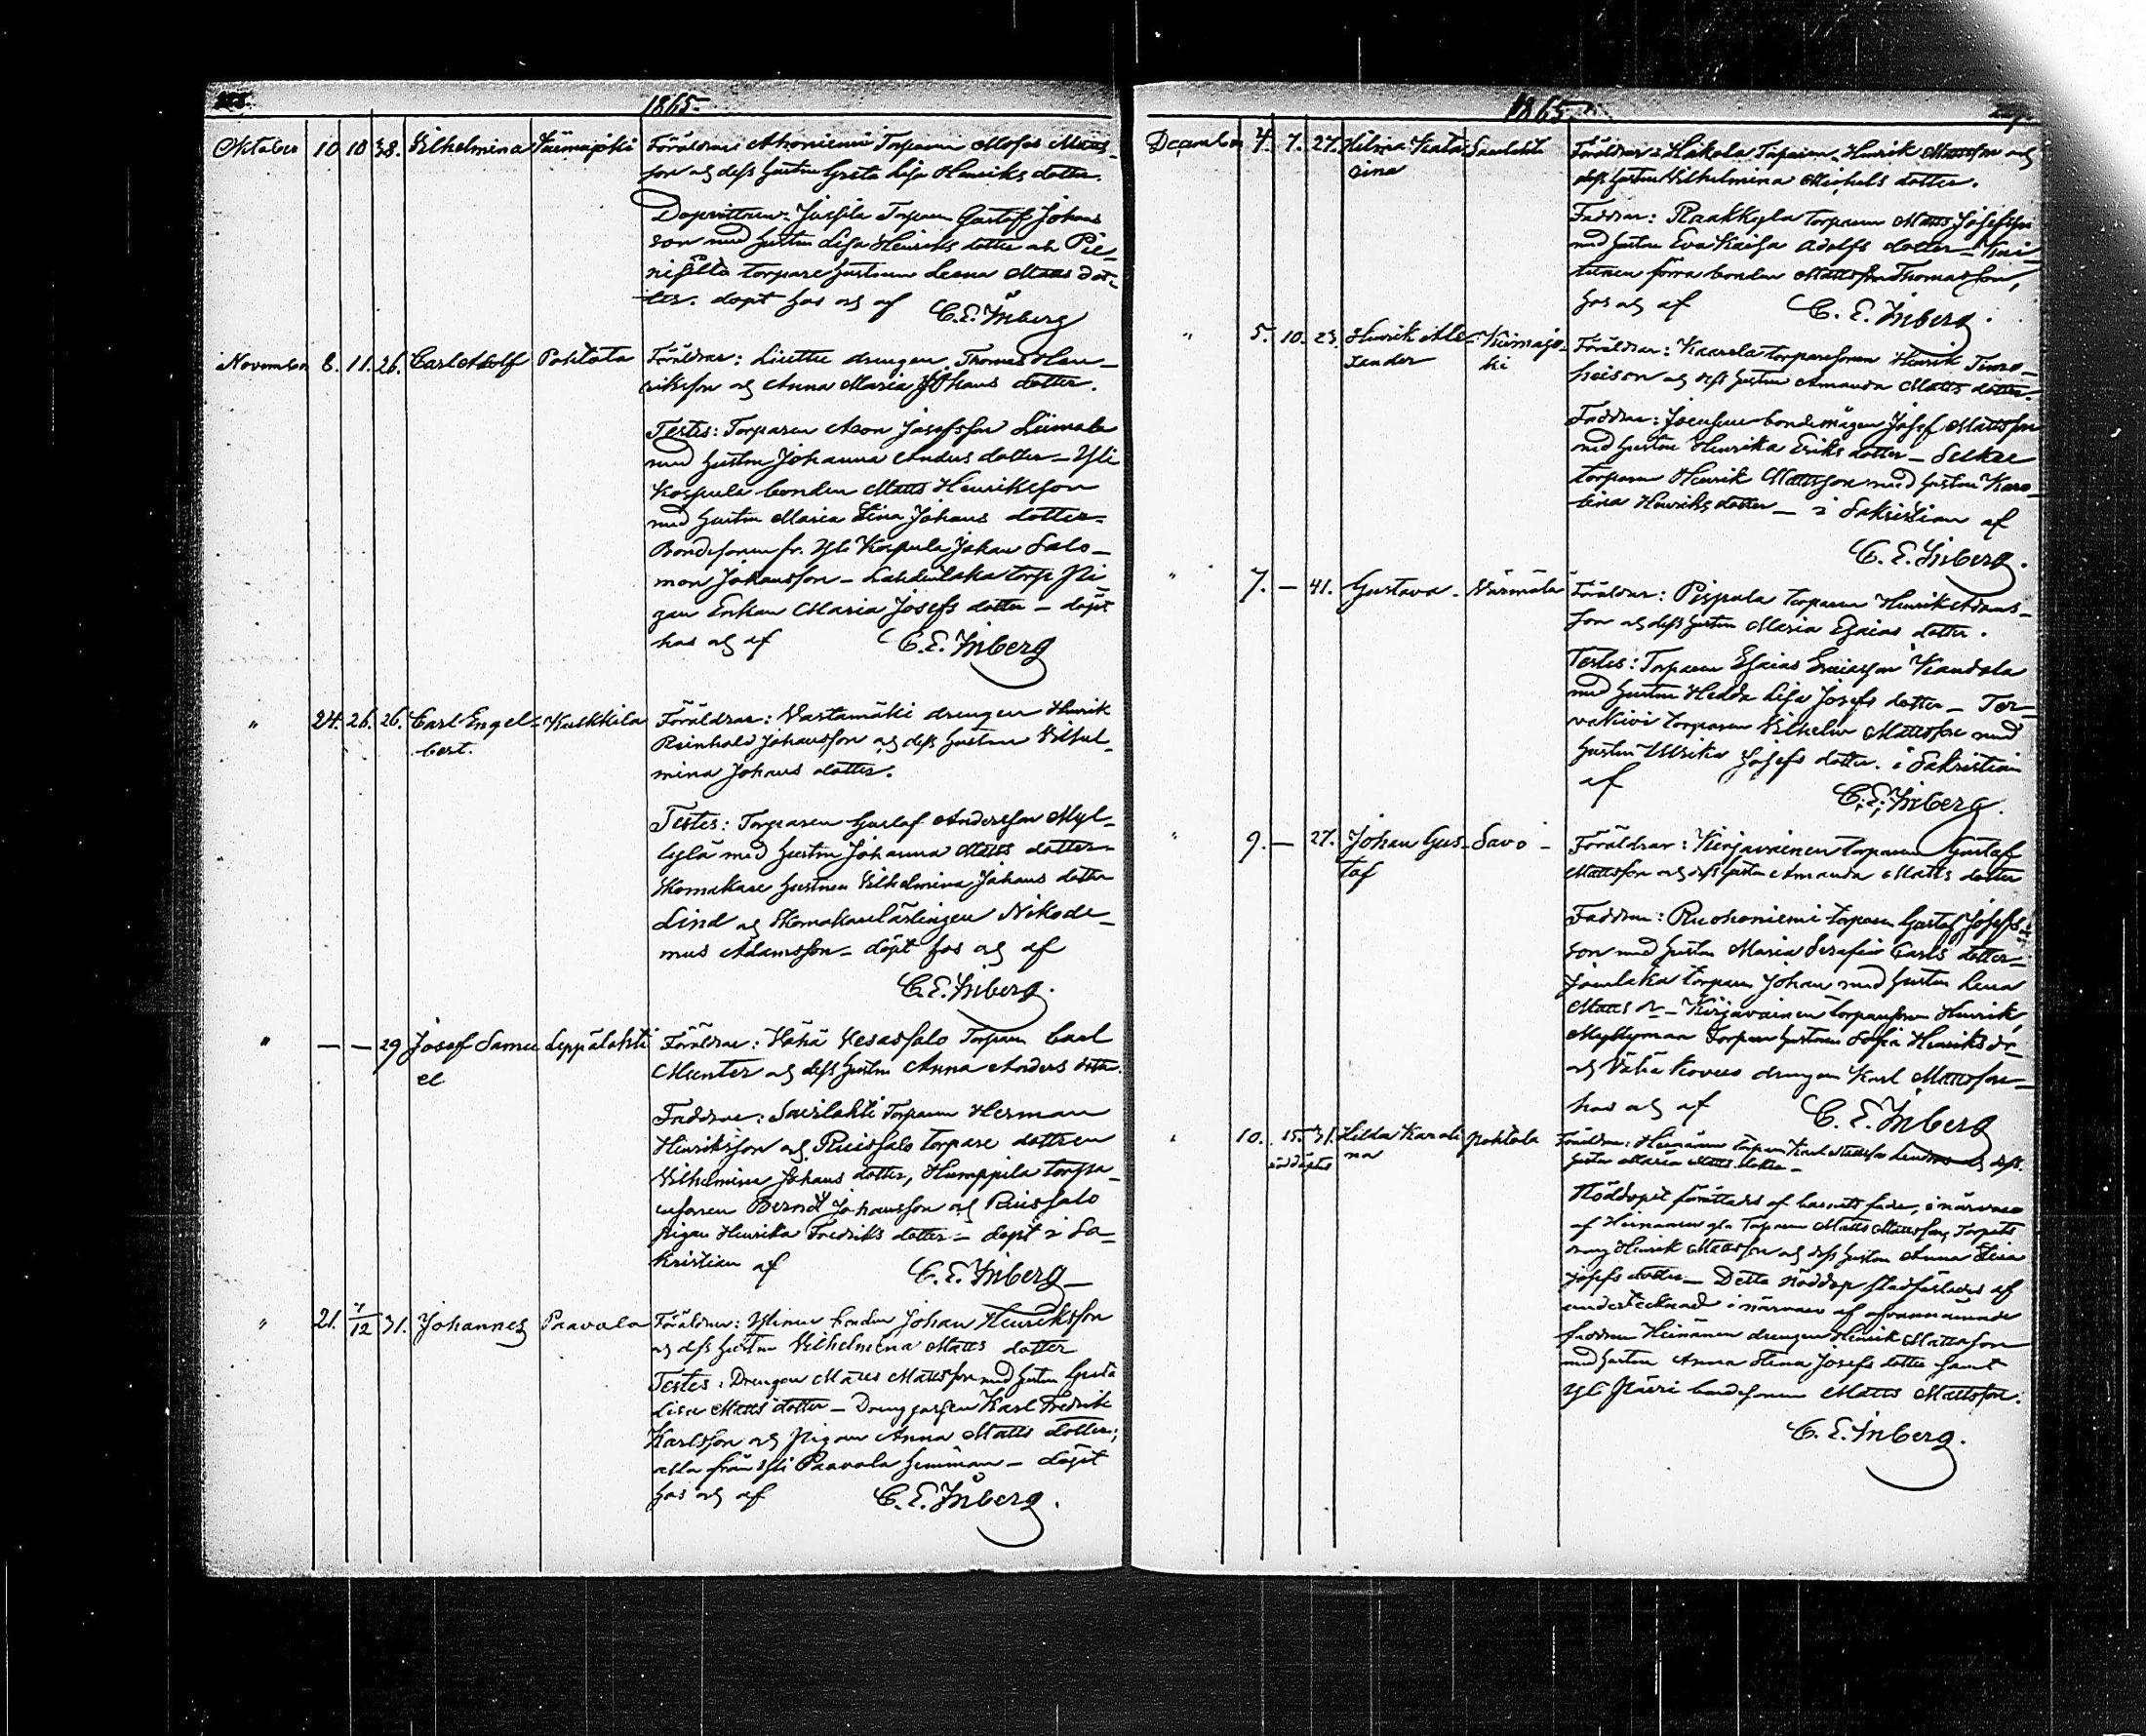 1865.
Oktober 10 10 38. Vilhelmina Kiimajoki Föräldrar: Ahoniemi Torparen Moses Matts-
son och dess hustru Greta Lisa Henriks dotter.
Dopvittnen: Jussila Torparen Gustaf Johans
son med hustru Lisa Henriks dotter och Pie-
torpare hustrun Leena Matts dot-
ter. döpt hos och af C. E. Inberg
November 8. 11. 26. Carl Adolf Pohtola Föräldrar: drengen Thomas Hen-
riksson och Anna Maria Johans dotter.
Testes: Torparen Aron Josefsson Liimala
med hustru Johanna Anders dotter – Yli
Korpula bonden Matts Henriksson
med hustru Maria Stina Johans dotter –
Bondesonen fr. Yli Korpula Johan Salo-
mon Johansson – torp Pi-
gan Enkan Maria Josefs dotter – döpt
hos och af C. E. Inberg
" 24. 26. 26. Carl Engel- Kulkkila Föräldrar: Vastamäki drengen Henrik
bert. Reinhold Johansson och dess hustru Vilhel-
mina Johans dotter.
Testes: Torparen Gustaf Andersson Myl-
lylä med hustru Johanna Matts dotter –
Skomakare hustrun Vilhelmina Johans dotter
Lind och Skomakarelärlingen Nikode-
mus Adamsson – döpt hos och af
C. E. Inberg.
" — — 29 Josef Samu Leppälahti Föräldrar: Hähä Kesassalo Torparen Carl
el Munter och dess hustru Anna Anders dotter.
Faddrar: Saarlahti Torparen Herman
Henriksson och Ruissalo torpare dottren
Vilhelmina Johans dotter, Humppila torpa-
resonen Bernd Johansson och Ruissalo
pigan Henrika Fredriks dotter – döpt i Sa-
kristian af C. E. Inberg –
" 21. 7/12 31. Johannes Paavola Föräldrar: bonden Johan Henriksson
och dess hustru Vilhelmina Matts dotter
Testes: Drengen Matts Mattsson med hustru Greta
Lisa Matts dotter – Drenggossen Karl Fredrik
Karlsson och Pigan Anna Matts dotter;
alla från Yli Paavola hemman – döpt
hos och af C. E. Inberg.
1865.
December 4. 7. 27. Hilma Kata Saarlahti Föräldrar: Hakola Torparen Henrik Mattsson och
rina dess hustru Vilhelmina Michels dotter.
Faddrar: Raakkyla torparen Matts Josefsson
med hustru Eva Kaisa Adolfs dotter –
förra bonden Mattsson Thomasson,
hos och af C. E. Inberg.
" 5. 10. 23. Henrik Ale- Kiimajo- Föräldrar: Kaarela torparesonen Henrik Timo-
xander ki och dess hustru Amanda Matts dotter.
Faddrar: bondemågen Josef Mattsson
med hustru Henrika Eriks dotter –
torparen Henrik Mattsson med hustru Karo-
lina Henriks dotter – i Sakristian af
C. E. Inberg.
" 7. — 41. Gustava – Värmälä Föräldrar: Pispala torparen Henrik Adams-
son och dess hustru Maria Esaias dotter.
Testes: Torparen Esaias Esaiasson Kandola
med hustru Hedda Lisa Josefs dotter – Ter-
vakivi torparen Vilhelm Mattsson med
hustru Ulrika Josefs dotter. i Sakristian
af C. E. Inberg.
" 9. — 27. Johan Gus- Savo – Föräldrar: Kirjavainen torparen Gustaf
taf Mattsson och dess hustru Amanda Matts dotter
Faddrar: Ruohoniemi torparen Gustaf Josefs-
son med hustru Maria Serafia Carls dotter –
torparen Johan med hustru Leena
Matts dr – Kirjavainen torparesonen Henrik,
Myllymaa torpare hustrun Sofia Henriks dr –
och Vähä Koveeo drengen Karl Mattsson –
hos och af C. E. Inberg
" 10. 15. 31. Hilda Karoli Pohtola Föräldrar: Heinänen torparen Karl Mattsson och dess
nöddöptes na hustru Maria Matts dotter –
Nöddopet förättades af barnets fader, i närvaro
af Heinänen gla Torparen Matts Mattsson, Torpets
dreng Henrik Mattsson och dess hustru Anna Stina
Josefs dotter – Detta nöddop stadfästades af
undertecknad i närvaro af ofvannämnde
faddrar Heinänen drengen Henrik Mattsson
med hustru Anna Stina Josefs dotter samt
Yli Päiri bondesonen Matts Mattsson.
C. E. Inberg.